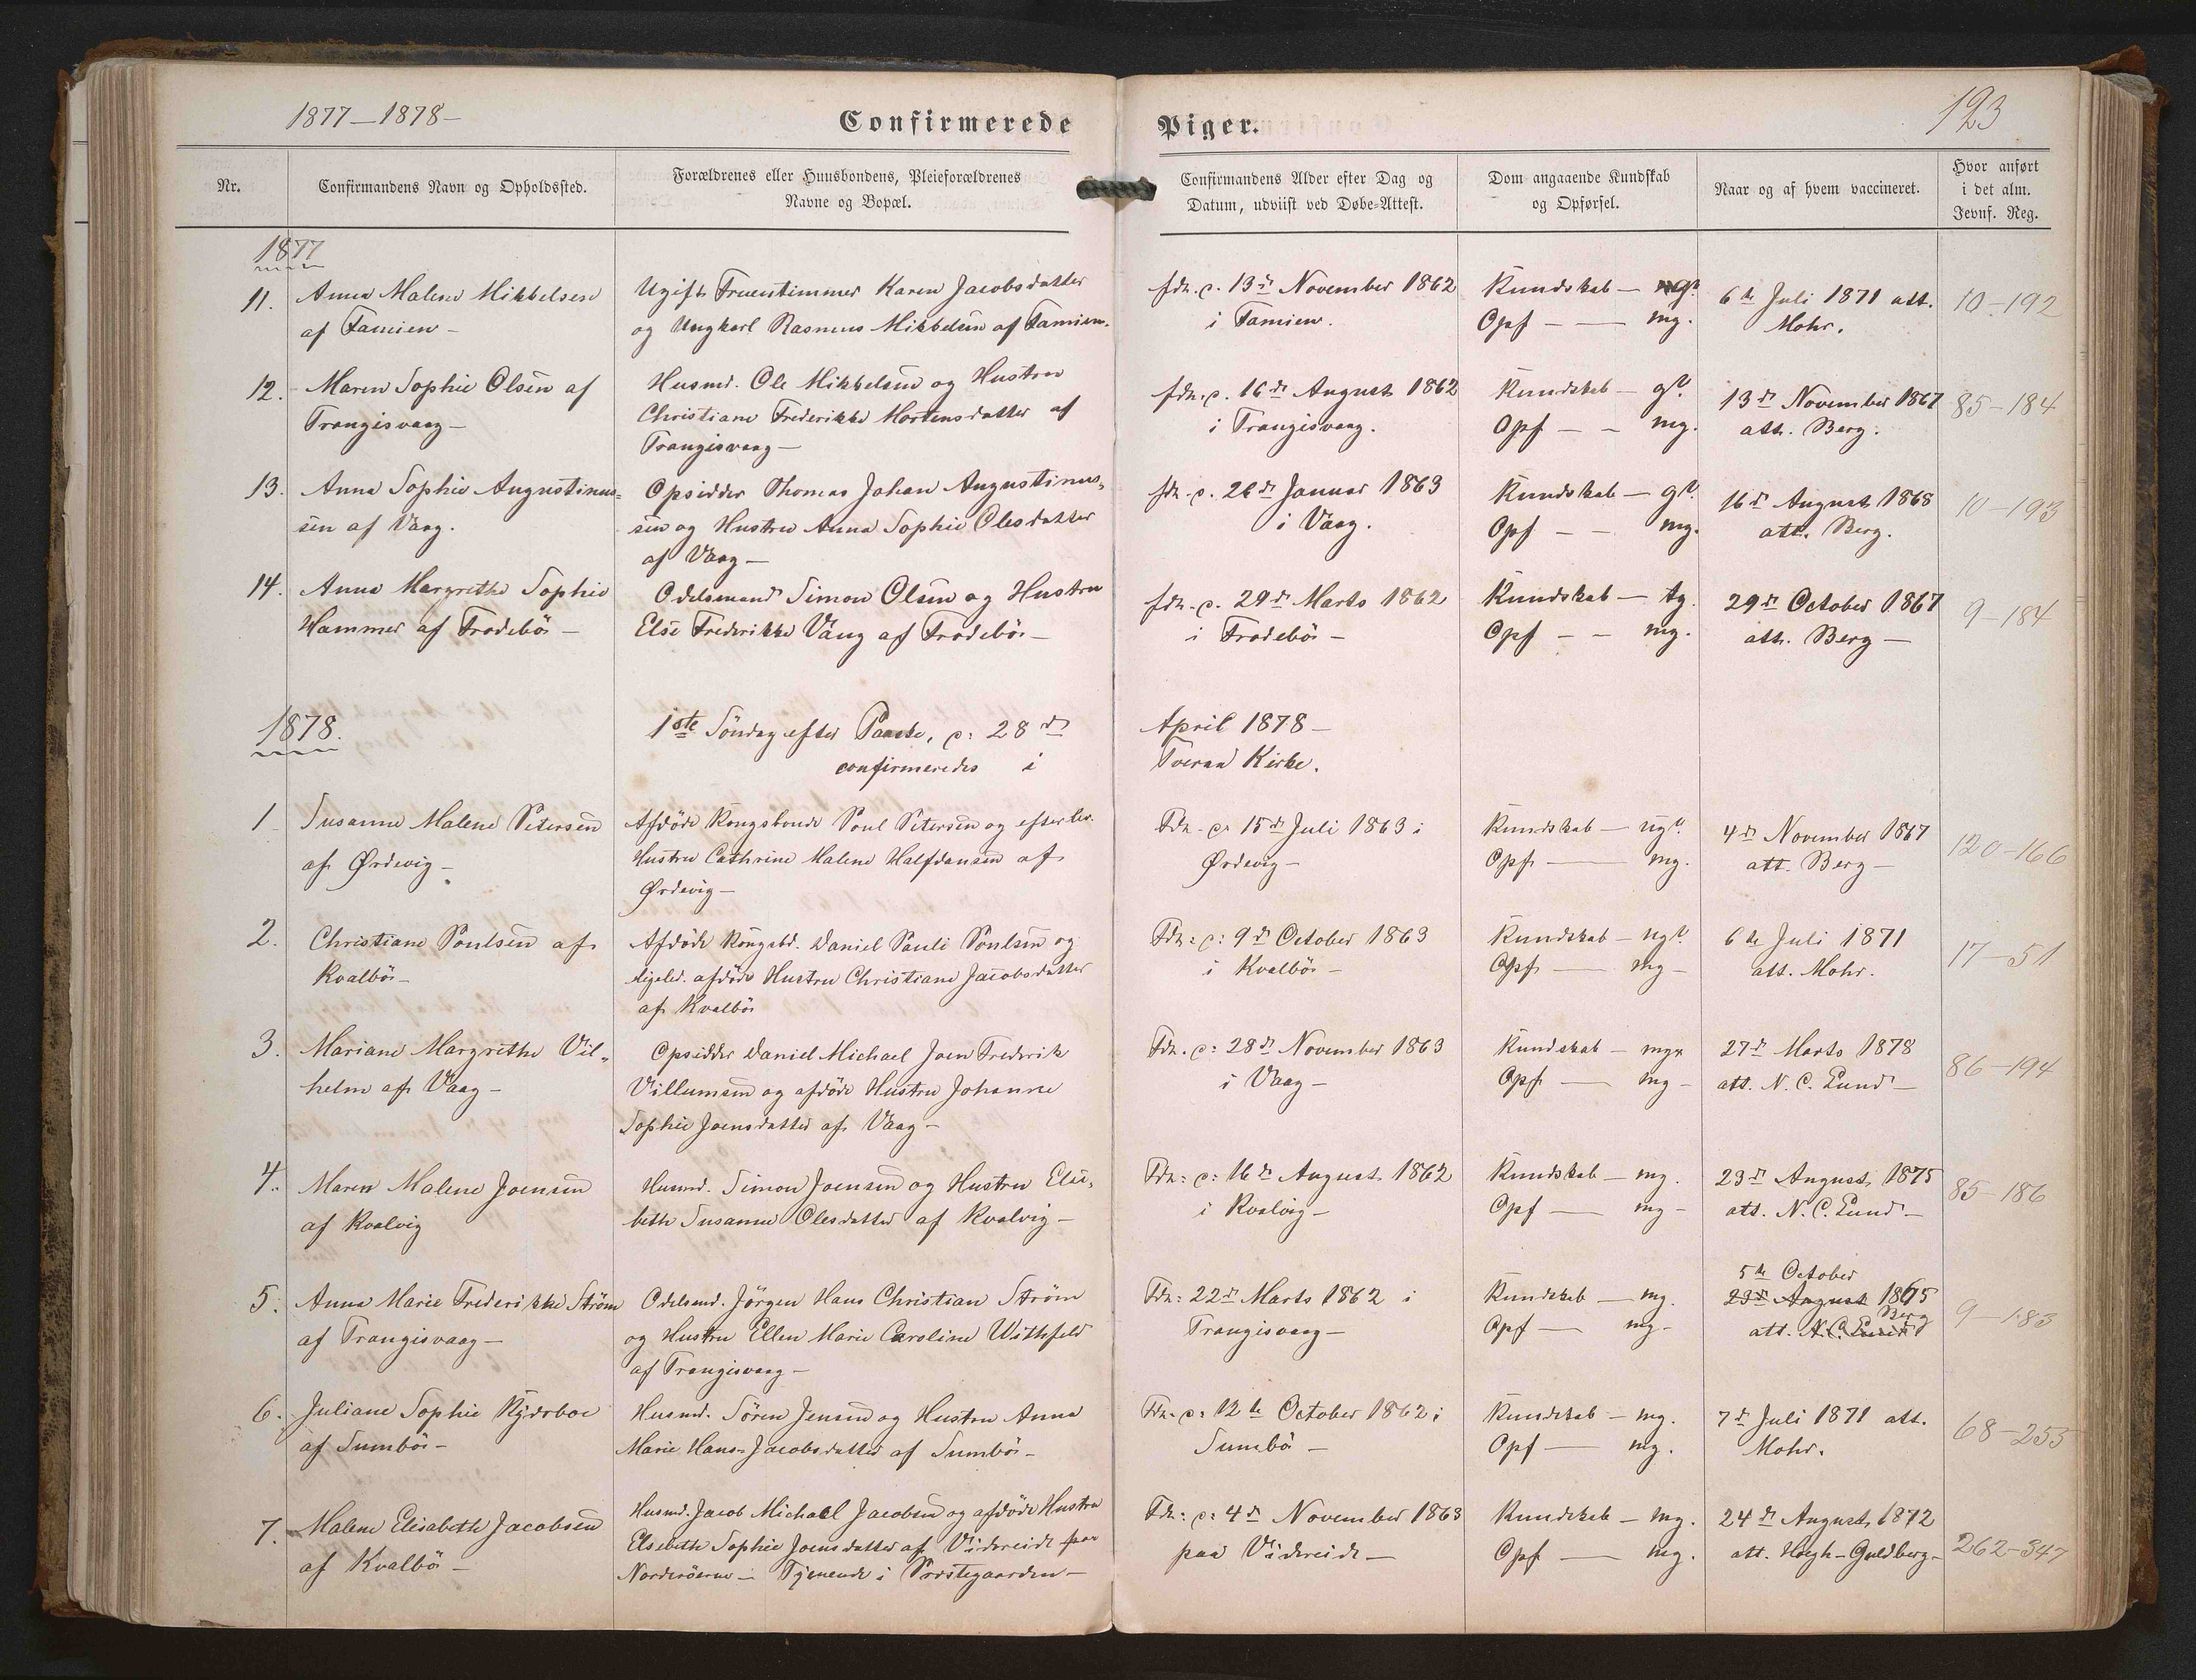 1877–1878–
Confirmerede Piger.
123
Nr.
Confirmandens Navn og Opholdssted.
Forældrenes eller Huusbondens, Pleieforældrenes
Navne og Bopæl.
Confirmandens Alder efter Dag og
Datum, udviist ved Døbe-Attest.
Dom angaaende Kundskab
og Opførsel.
Naar og af hvem vaccineret.
Hvor anført
i det alm.
Jevnf. Reg.
1877
11. Anna Malene Mikkelsen
af Famien –
Ugift Fruentimmer Karen Jacobsdatter
og Ungkarl Rasmus Mikkelsen af Famien.
fdt. c. 13de November 1862
i Famien.
Kundskab –
Opf – mg.
6te Juli 1871 att.
Mohr.
10–192
12. Maren Sophie Olsen af
Trangisvaag –
Husmd. Ole Mikkelsen og Hustru
Christiane Frederikke Mortensdatter af
Trangisvaag –
fdt. c. 16de August 1862
i Trangisvaag.
Kundskab – gt.
Opf – – mg.
13de November 1867
att. Berg.
85–184
13. Anna Sophie Augustinus=
sen af Vaag.
Opsidder Thomas Johan Augustinus=
sen og Hustru Anna Sophie Olesdatter
af Vaag –
fdt. c. 26de Januar 1863
i Vaag.
Kundskab – gt.
Opf – – mg.
16de August 1868
att. Berg.
10–193
14. Anna Margrethe Sophie
Hammer af Frodebö –
Odelsmand Simon Olsen og Hustru
Else Frederikke Vang af Frodebö –
fdt. c. 29de Marts 1862
i Frodebö –
Kundskab – tg.
Opf – – mg.
29de October 1867
att. Berg –
9–184
1878.
1ste Söndag efter Paaske, c: 28de April 1878 –
confirmeredes i Tveraa Kirke.
1 Susanne Malene Petersen
af Ørdevig –
Afdöde Kongsbonde Poul Petersen og efterlev.
Hustru Cathrine Malene Halfdansen af
Ørdevig –
Fdt. c: 15de Juli 1863 i
Ørdevig –
Kundskab – ugt.
Opf – mg.
4de November 1867
att. Berg –
120–166
2. Christiane Poulsen af
Kvalbö –
Afdöde Kongsbd. Daniel Pauli Poulsen og
ligeled. afdöde Hustru Christiane Jacobsdatter
af Kvalbö
Fdt: c: 9de October 1863
i Kvalbö –
Kundskab – ugt.
Opf – mg –
6te Juli 1871
att. Mohr.
17–51
3. Mariane Margrethe Vil=
helm af Vaag –
Opsidder Daniel Michael Joen Frederik
Villumsen og afdöde Hustru Johanne
Sophie Joensdatter af Vaag –
Fdt. c: 28de November 1863
i Vaag –
Kundskab – mgx
Opf – mg –
27de Marts 1878
att. N. C. Lund –
86–194
4. Maren Malene Joensen
af Kvalvig
Husmd. Simon Joensen og Hustru Elis=
beth Susanne Olesdatter af Kvalvig –
Fdt: c: 16de August 1862
i Kvalvig –
Kundskab – mg.
Opf – mg –
23de August 1875
att. N. C. Lund –
85–186
5. Anna Marie Frederikke Ström
af Trangisvaag –
Odelsmd. Jörgen Hans Christian Ström
og Hustru Ellen Marie Caroline Withfeld
af Trangisvaag –
Fdt: 22de Marts 1862 i
Trangisvaag –
Kundskab – mg.
Opf – mg –
5te October
23de August 1865
Berg
att. N. C. Lund
9–183
6. Juliane Sophie Kjdsboe
af Sumbö –
Husmd. Sören Jensen og Hustru Anna
Marie Hans-Jacobsdatter af Sumbö –
Fdt. c: 12te October 1862 i
Sumbö –
Kundskab – mg.
Opf – mg.
7de Juli 1871 att.
Mohr.
68–255
7. Malene Elisabeth Jacobsen
af Kvalbö –
Husmd. Jacob Michael Jacobsen og afdöde Hustru
Elsebeth Sophie Joensdatter af Videreide paa
Norderöerne – Tjenende i Præstegaarden –
Fdt: c: 4de November 1863
paa Videreide –
Kundskab – mg.
Opf – mg.
24de August 1872
att. Høegh-Guldberg –
262–347